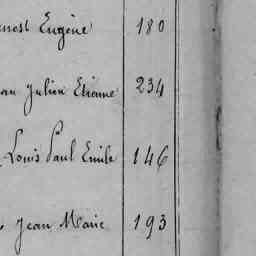 Eugène 180
Julien Etienne 234
Louis Paul Emile 146
Jean Marie 193